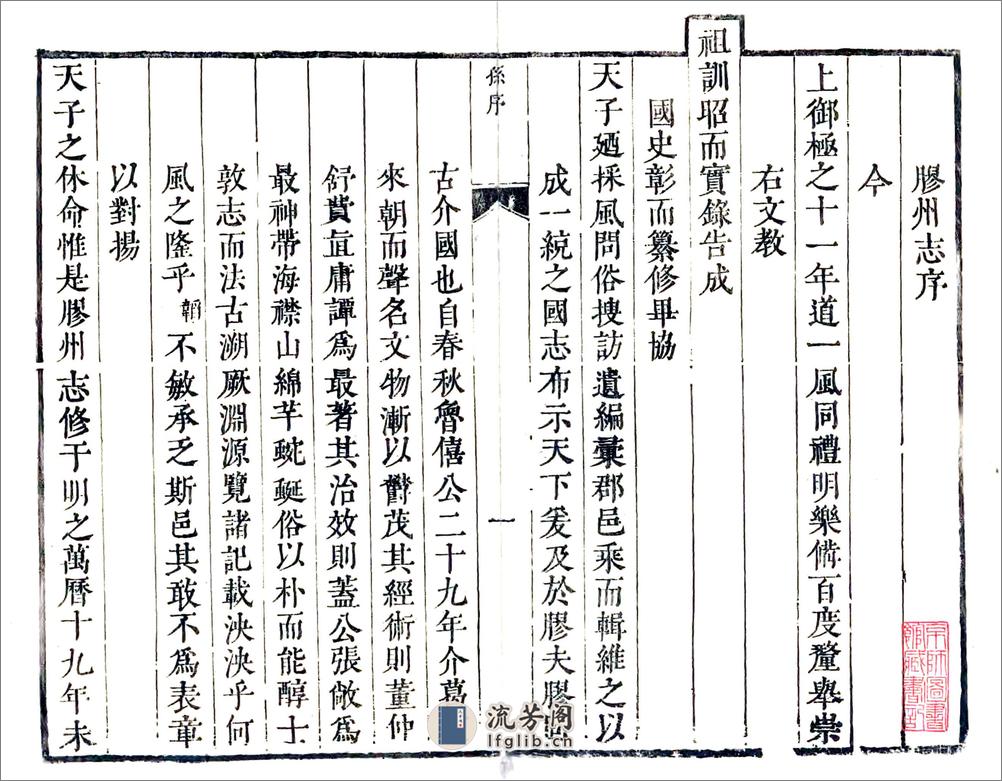 膠州志序
今
上御極之十一年道一風同禮明樂備百度釐舉崇
右文教
祖訓昭而實錄告成
國史彰而纂修畢協
天子廼採風問俗搜訪遺編彙郡邑乘而輯維之以
成一統之國志布示天下爰及於膠夫膠
孫序
一
古介國也自春秋魯僖公二十九年介葛
來朝而聲名文物漸以欝茂其經術則董仲
舒費直庸譚爲最著其治效則蓋公張敞爲
最神帶海襟山綿芊蜿蜒俗以朴而能醇士
敦志而法古溯厥淵源覽諸記載泱泱乎何
風之隆乎韜不敏承乏斯邑其敢不爲表章
以對揚
天子之休命惟是膠州志修于明之萬曆十九年未
流芳阁
lfglib.cn